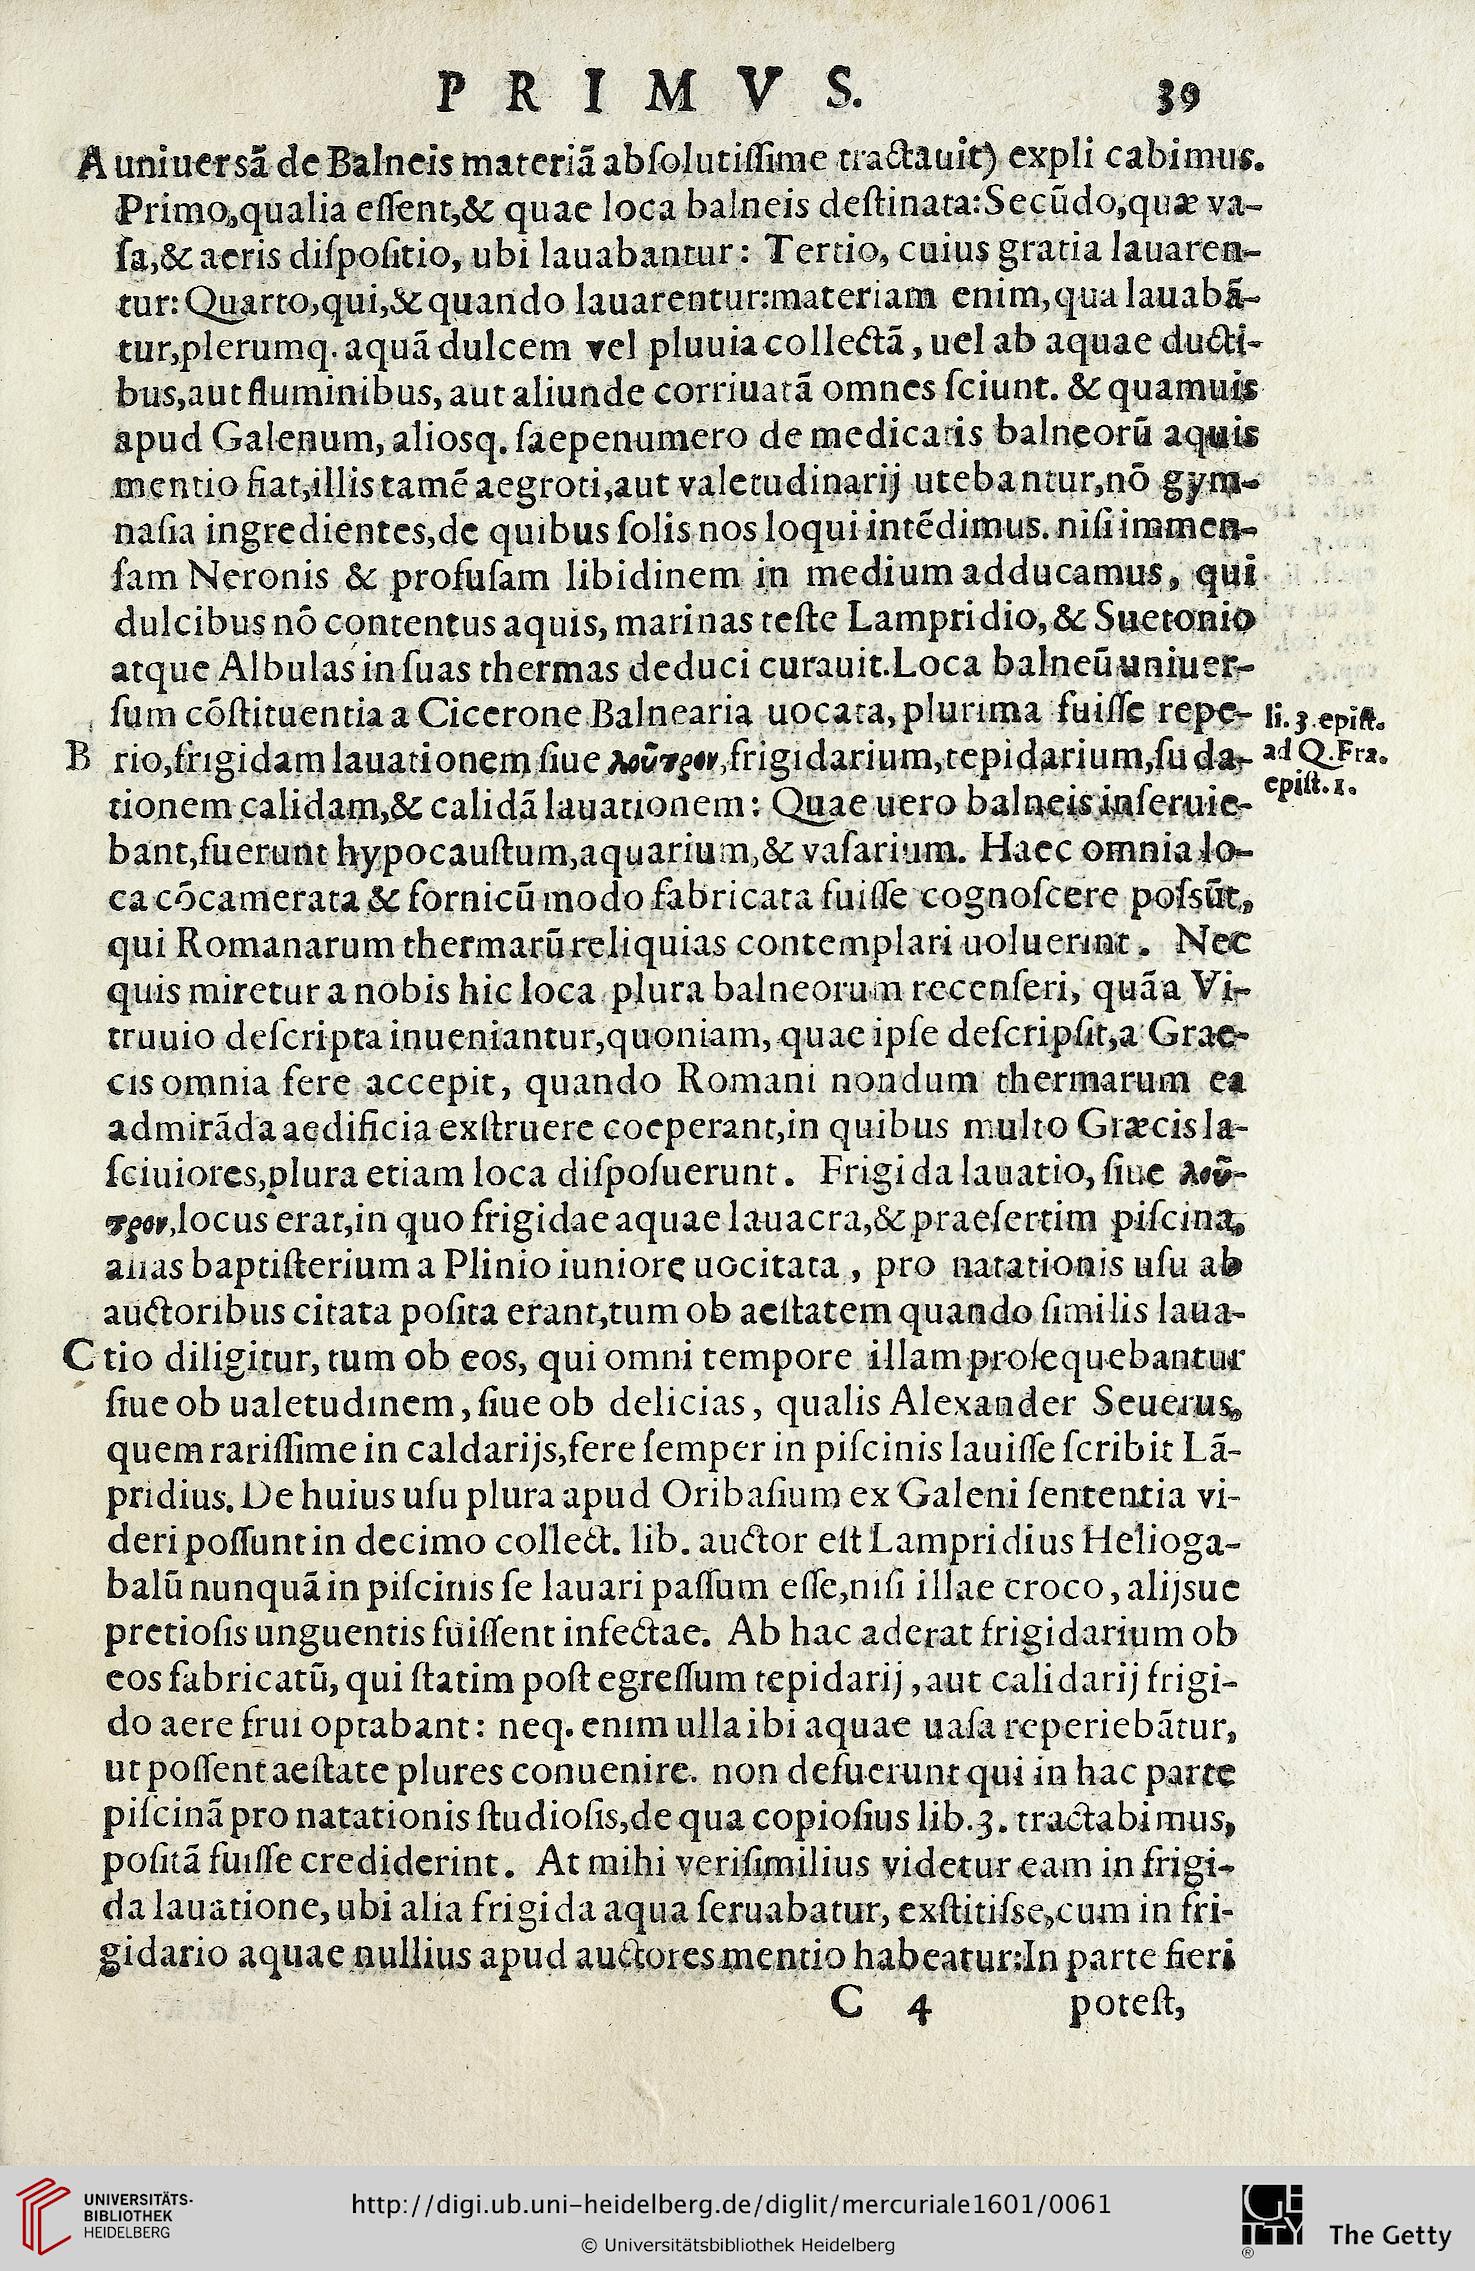 PRIMVS. 39
A uniuersã de Balneis materiã absolutissime tractauit) expli cabimus.
Primo, qualia essent, & quae loca balneis destinata: Secũdo, quæ va-
sa, & aeris dispositio, ubi lauabantur: Tertio, cuius gratia lauaren-
tur: Quarto, qui, & quando lauarentur: materiam enim, qua lauabã-
tur, plerumq. aquã dulcem vel pluuia collectã, uel ab aquae ducti-
bus, aut fluminibus, aut aliunde corriuatã omnes sciunt. & quamuis
apud Galenum, aliosq. saepenumero de medicatis balneorũ aquis
mentio fiat, illis tamẽ aegroti, aut valetudinarij utebantur, nõ gym-
nasia ingredientes, de quibus solis nos loqui intẽdimus. nisi immen-
sam Neronis & profusam libidinem in medium adducamus, qui
dulcibus nõ contentus aquis, marinas teste Lampridio, & Suetonio
atque Albulas in suas thermas deduci curauit. Loca balneũ uniuer-
sum cõstituentia a Cicerone Balnearia uocata, plurima fuisse repe-
li. 3. epist.
B rio, frigidam lauationem siue λοῦτρον, frigidarium, tepidarium, suda-
ad Q. Fra.
tionem calidam, & calidã lauationem: Quae uero balneis inseruie-
epist. 1.
bant, fuerunt hypocaustum, aquarium, & vasarium. Haec omnia lo-
ca cõcamerata & fornicũ modo fabricata fuisse cognoscere possũt,
qui Romanarum thermarũ reliquias contemplari uoluerint. Nec
quis miretur a nobis hic loca plura balneorum recenseri, quã a Vi-
truuio descripta inueniantur, quoniam, quae ipse descripsit, a Grae-
cis omnia fere accepit, quando Romani nondum thermarum ea
admirãda aedificia exstruere coeperant, in quibus multo Græcis la-
sciuiores, plura etiam loca disposuerunt. Frigida lauatio, siue λοῦ-
τρον, locus erat, in quo frigidae aquae lauacra, & praesertim piscina,
alias baptisterium a Plinio iuniore uocitata, pro natationis usu ab
auctoribus citata posita erant, tum ob aestatem quando similis laua-
C tio diligitur, tum ob eos, qui omni tempore illam prosequebantur
siue ob ualetudinem, siue ob delicias, qualis Alexander Seuerus,
quem rarissime in caldarijs, fere semper in piscinis lauisse scribit Lã-
pridius. De huius usu plura apud Oribasium ex Galeni sententia vi-
deri possunt in decimo collect. lib. auctor est Lampridius Helioga-
balũ nunquã in piscinis se lauari passum esse, nisi illae croco, alijsue
pretiosis unguentis fuissent infectae. Ab hac aderat frigidarium ob
eos fabricatũ, qui statim post egressum tepidarij, aut calidarij frigi-
do aere frui optabant: neq. enim ulla ibi aquae uasa reperiebãtur,
ut possent aestate plures conuenire. non defuerunt qui in hac parte
piscinã pro natationis studiosis, de qua copiosius lib. 3. tractabimus,
positã fuisse crediderint. At mihi verisimilius videtur eam in frigi-
da lauatione, ubi alia frigida aqua seruabatur, exstitisse, cum in fri-
gidario aquae nullius apud auctores mentio habeatur: In parte fieri
C 4 potest,
UNIVERSITÄTS-
BIBLIOTHEK
HEIDELBERG
http://digi.ub.uni-heidelberg.de/diglit/mercuriale1601/0061
© Universitätsbibliothek Heidelberg
GETTY
®
The Getty